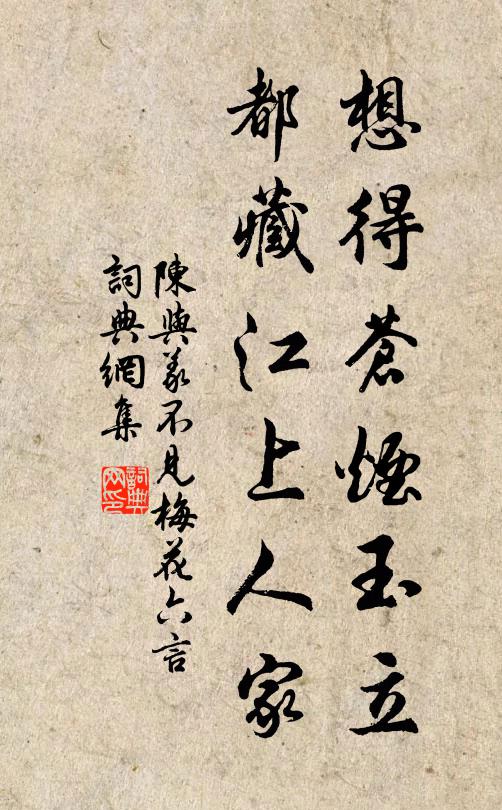 想得蒼煙玉立
都藏江上人家
陳與義不見梅花六言
詞典網集
詞典網印